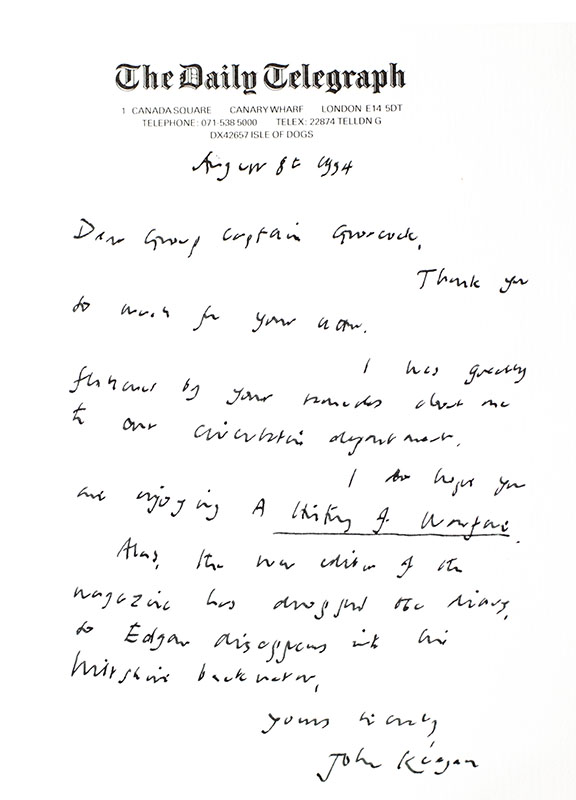 The Daily Telegraph
1 CANADA SQUARE CANARY WHARF LONDON E14 5DT
TELEPHONE: 071-538 5000 TELEX: 22874 TELLDN G
DX42657 ISLE OF DOGS
August 8th 1994
Dear Group Captain
Thank you
so much for your note.
I was greatly
flattered by your remarks about me
to our circulation department.
I do hope you
are enjoying A History of Warfare.
Alas, the new editor of the
magazine has dropped the diary,
so Edgar disappears into his
Wiltshire backwater.
Yours sincerely,
John Keegan